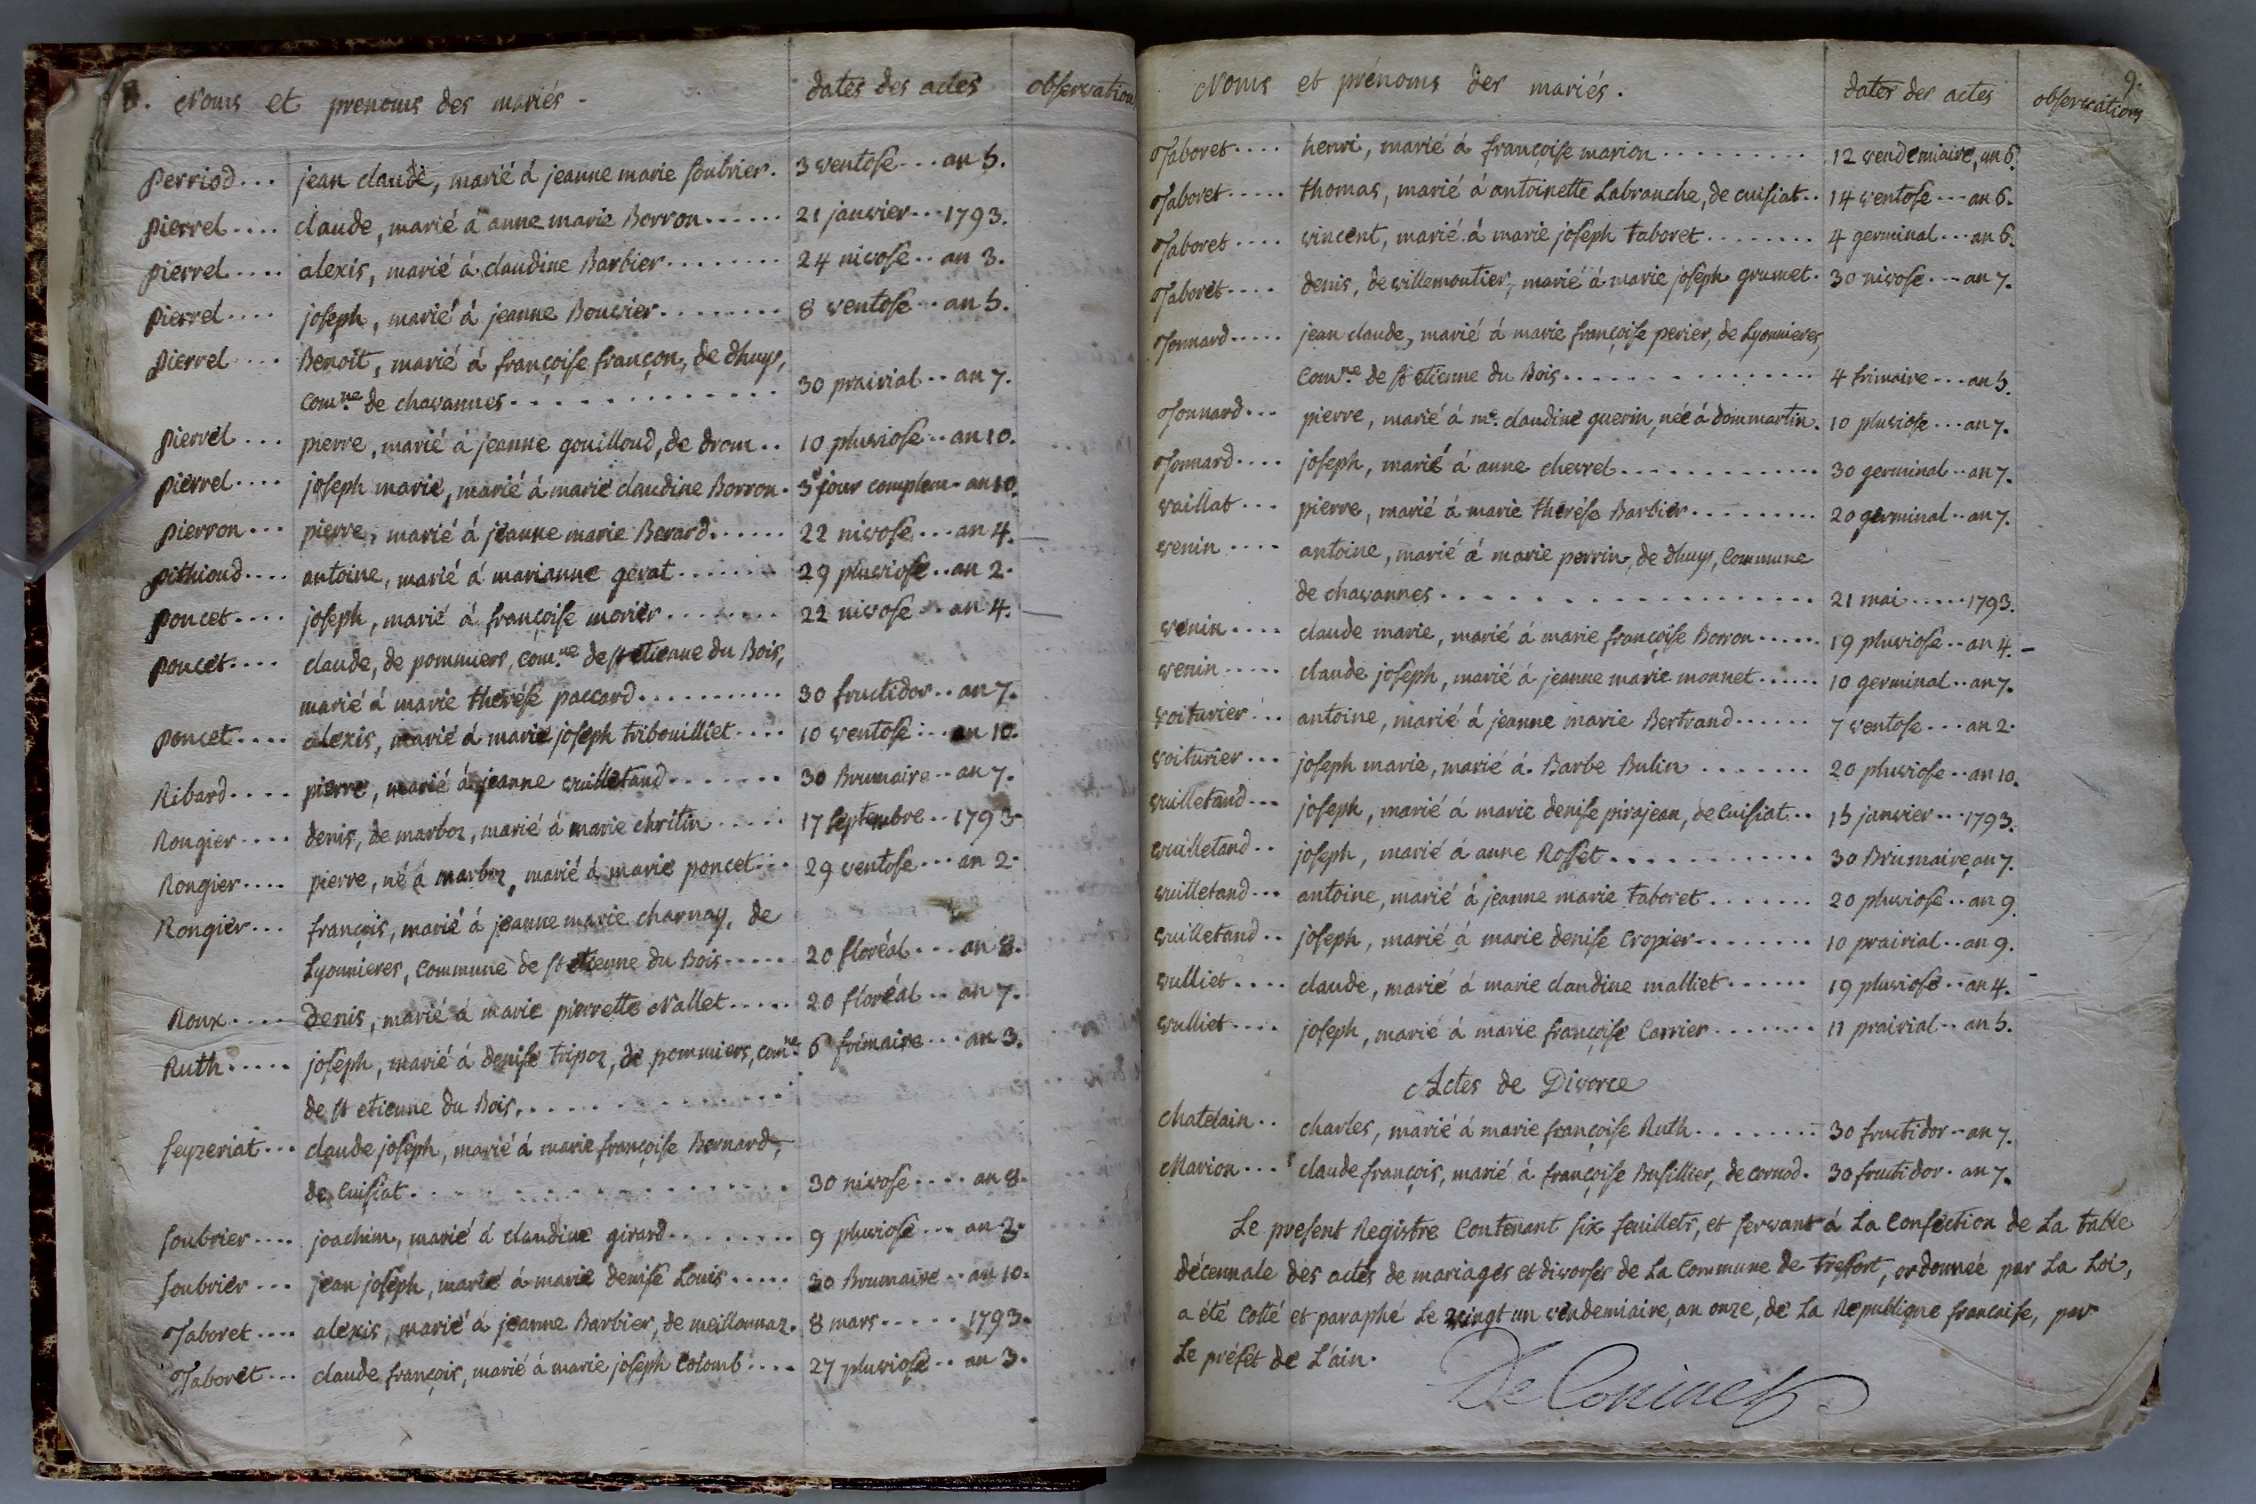 8. Noms et prenoms des mariés. dates des actes observations
perriod... jean claude, marié á jeanne marie soubrier. 3 ventose... an 5.
pierrel.... claude, marié á anne marie Borron...... 21 janvier... 1793.
pierrel.... alexis, marié á claudine Barbier........ 24 nivose.. an 3.
pierrel.... joseph, marié á jeanne Bouvier........ 8 ventose... an 5.
pierrel.... Benoit, marié á françoise françon, de dhuys,
com.ne de chavannes............. 30 prairial.. an 7.
pierrel... pierre, marié á jeanne gouilloud, de drom.. 10 pluviose.. an 10.
pierrel.... joseph marie, marié á marie claudine Borron. 3e jour complem. an 10.
pierron... pierre, marié á jeanne marie Berard...... 22 nivose... an 4.
pithioud.... antoine, marié á marianne gerat....... 29 pluviose.. an 2.
poncet.... joseph, marié á françoise morier........ 22 nivose.. an 4.
poncet.... claude, de pommiers, com.ne de st etienne du Bois,
marié á marie therése paccard.......... 30 fructidor.. an 7.
poncet.... alexis, marié á marie joseph tribouilliet.... 10 ventose... an 10.
Ribard.... pierre, marié á jeanne vuilletand....... 30 Brumaire.. an 7.
Rongier.... denis, de marboz, marié á marie chritin..... 17 septembre.. 1793.
Rongier.... pierre, né á marboz, marié á marie poncet... 29 ventose... an 2.
Rongier... françois, marié á jeanne marie charnay, de
Lyonnieres, commune de st etienne du Bois..... 20 floréal... an 8.
Roux.... denis, marié á marie pierrette Nallet..... 20 floréal.. an 7.
Ruth..... joseph, marié á denise tripoz, de pommiers, com.ne 6 frimaire... an 3.
de st etienne du Bois,.............
seyzeriat... claude joseph, marié á marie françoise Bernard,
de Cuisiat................... 30 nivose.... an 8.
soubrier.... joachim, marié á claudine girard......... 9 pluviose... an 3.
soubrier... jean joseph, marié á marie denise Louis..... 30 Brumaire.. an 10.
Taboret.... alexis, marié á jeanne Barbier, de meillonnaz. 8 mars..... 1793.
Taboret... claude françois, marié á marie joseph Colomb.... 27 pluviose.. an 3.
9.
Noms et prénoms des mariés. dates des actes observations
Taboret.... henri, marié á françoise marion......... 12 vendemiaire, an 6.
Taboret..... thomas, marié á antoinette Labranche, de cuisiat.. 14 ventose... an 6.
Taboret.... vincent, marié á marie joseph taboret........ 4 germinal... an 6.
Taboret.... denis, de villemoutier, marié á marie joseph grumet. 30 nivose... an 7.
Tonnard..... jean claude, marié á marie françoise perier, de Lyonnieres,
Com.ne de st etienne du Bois............... 4 frimaire... an 5.
Tonnard... pierre, marié á me. claudine guerin, née á dommartin. 10 pluviose... an 7.
Tonnard.... joseph, marié á anne chevrel............. 30 germinal.. an 7.
vaillat... pierre, marié á marie thérése Barbier......... 20 germinal.. an 7.
venin.... antoine, marié á marie perrin, de dhuys, Commune
de chavannes.................. 21 mai..... 1793.
venin.... claude marie, marié á marie françoise Borron...... 19 pluviose.. an 4.
venin..... claude joseph, marié á jeanne marie monnet...... 10 germinal.. an 7.
voiturier... antoine, marié á jeanne marie Bertrand...... 7 ventose... an 2.
voiturier... joseph marie, marié á Barbe Bulin....... 20 pluviose.. an 10.
vuilletand... joseph, marié á marie denise pirajean, de Cuisiat.. 15 janvier... 1793.
vuilletand.. joseph, marié á anne Rosset............ 30 Brumaire, an 7.
vuilletand... antoine, marié á jeanne marie taboret....... 20 pluviose.. an 9.
vuilletand.. joseph, marié á marie denise Cropier........ 10 prairial.. an 9.
vulliet.... claude, marié á marie claudine malliet...... 19 pluviose.. an 4.
vulliet.... joseph, marié á marie françoise Carrier....... 11 prairial.. an 5.
Actes de Divorce
Chatelain.. charles, marié á marie françoise Ruth........ 30 fructidor.. an 7.
Marion... claude françois, marié á françoise Busillier, de cornod. 30 fructidor. an 7.
Le present Registre Contenant six feuillets, et servant á La Confection de La table
décennale des actes de mariages et divorses de La Commune de treffort, ordonnée par La Loi,
a été Coté et paraphé Le vingt un vendemiaire, an onze, de La Republique francaise, par
Le préfet de L'ain.